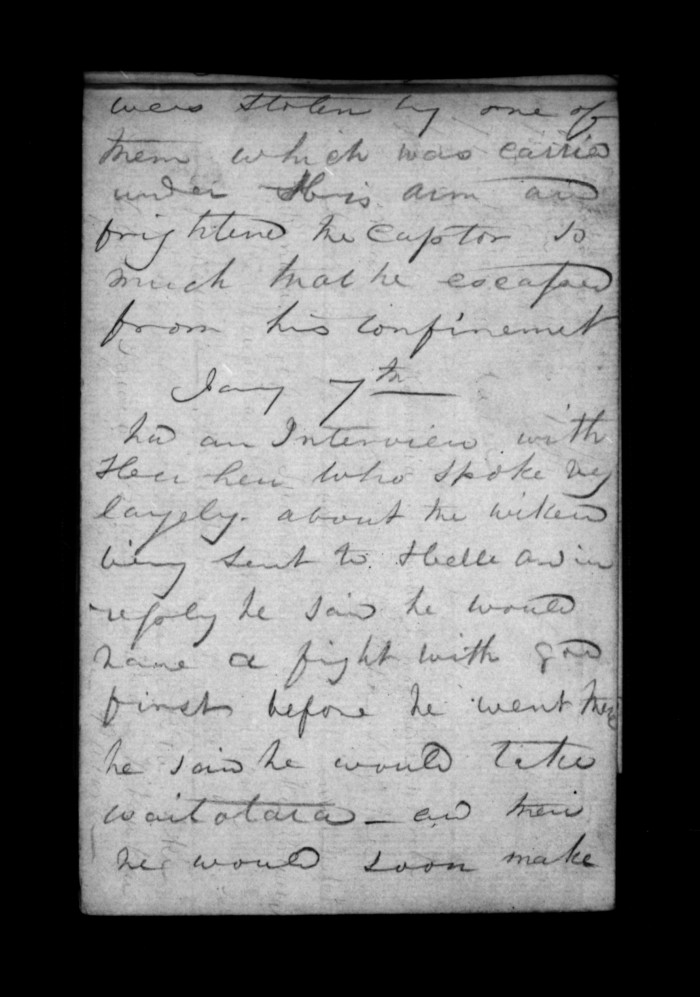 were stolen by one of
them which was carried
under his arm and
frightened the Captor so
much that he escaped
from his confinemet
Jany 7th
had an Interview with
Heu heu who spoke very
largely. about the wiked
being sent to. Helle and in
reply he said he would
have a fight with god
first before he went there
he said he would take
waitotara - and then
he would soon make